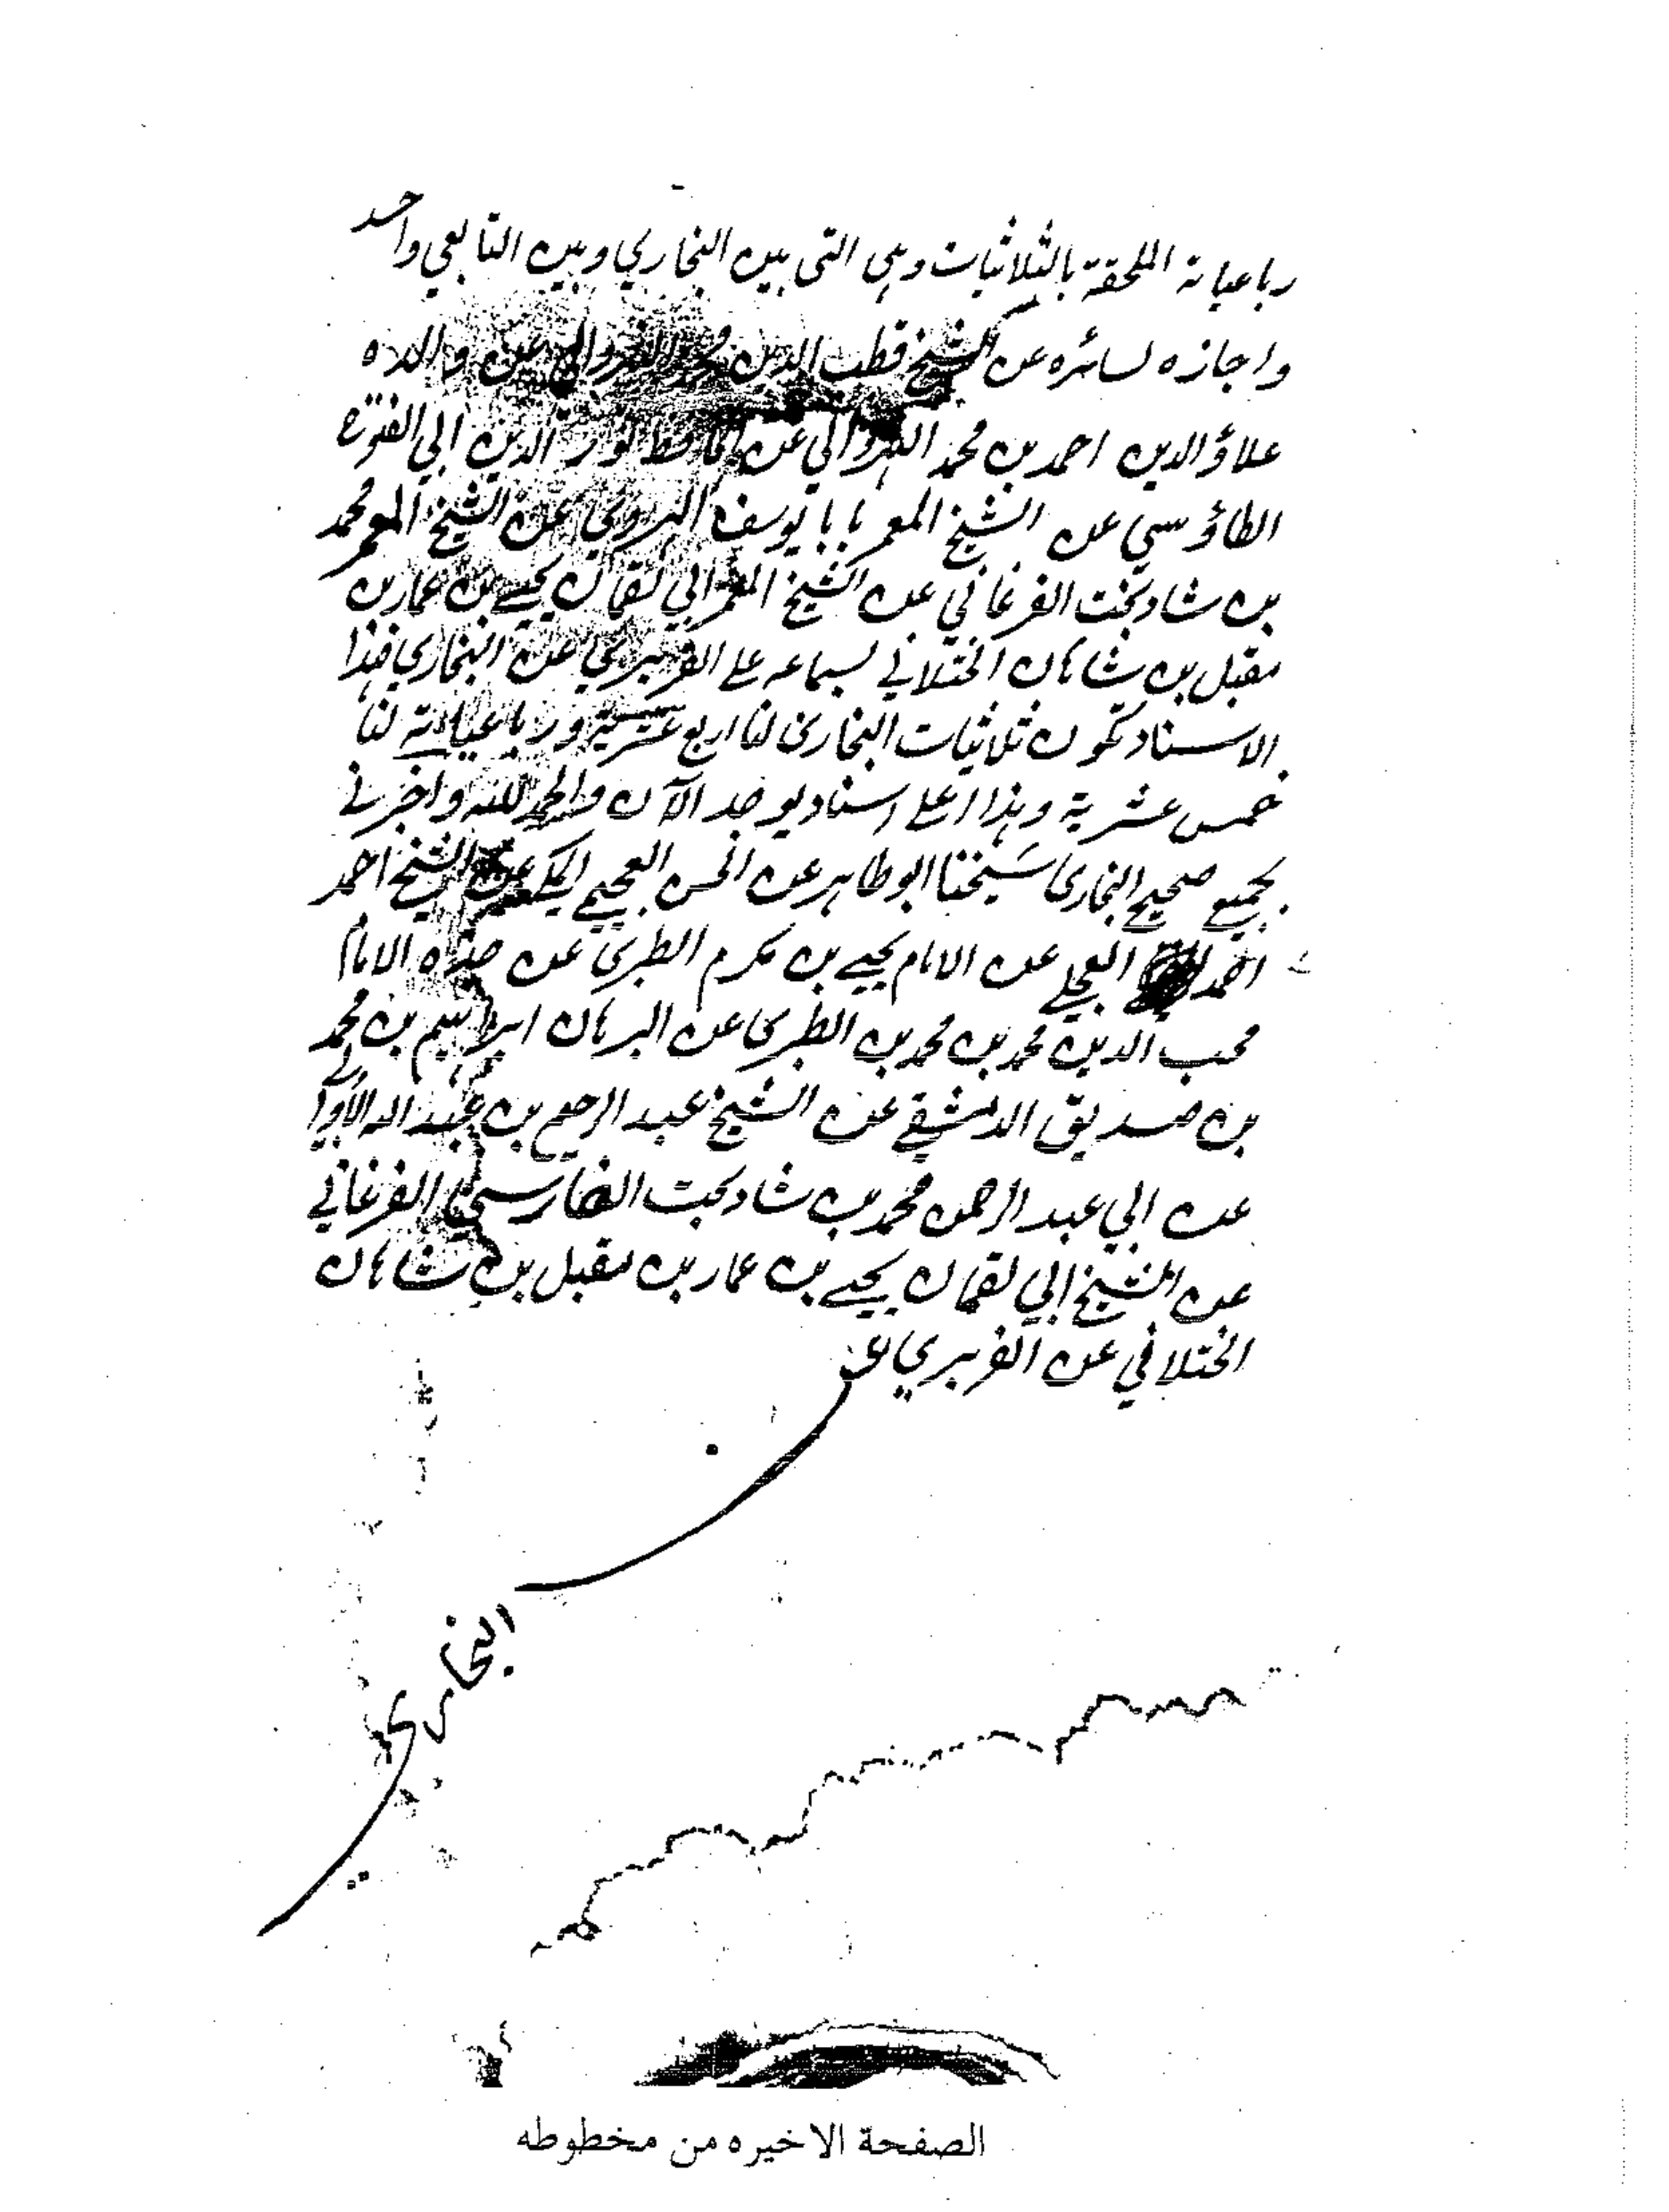 رباعياته الملحقة بالثلاثيات وهى التى بين البخاري وبين التابعي واحد
واجازه لسائره عن الشيخ قطب الدين محمد النهروالي عن والده
علاؤ الدين احمد بن محمد النهروالي عن الحافظ نور الدين ابي الفتوح
الطاؤسي عن الشيخ المعمر بابا يوسف الهروي عن الشيخ المعمر محمد
بن شاد بخت الفرغاني عن الشيخ المعمر ابي لقمان يحيى بن عمار بن
مقبل بن شاهان الختلاني بسماعه على الفربري عن البخاري فبهذا
الاسناد تكون ثلاثيات البخاري لنا اربع عشرية ورباعياته لنا
خمس عشرية وهذا اعلى اسناد يوجد الآن والحمد لله واخبرني
بجميع صحيح البخاري شيخنا ابو طاهر عن الحسن العجيمي المكي عن الشيخ احمد
احمد العجلي عن الامام يحيى بن مكرم الطبري عن جده الامام
محب الدين محمد بن محمد بن الطبري عن البرهان ابراهيم بن محمد
بن صديق الدمشقي عن الشيخ عبد الرحيم بن عبد الله الاوالي
عن ابي عبد الرحمن محمد بن شاد بخت الفارسي الفرغاني
عن الشيخ ابي لقمان يحيى بن عمار بن مقبل بن شاهان
الختلاني عن الفربري عن
البخاري
الصفحة الاخيره من مخطوطه